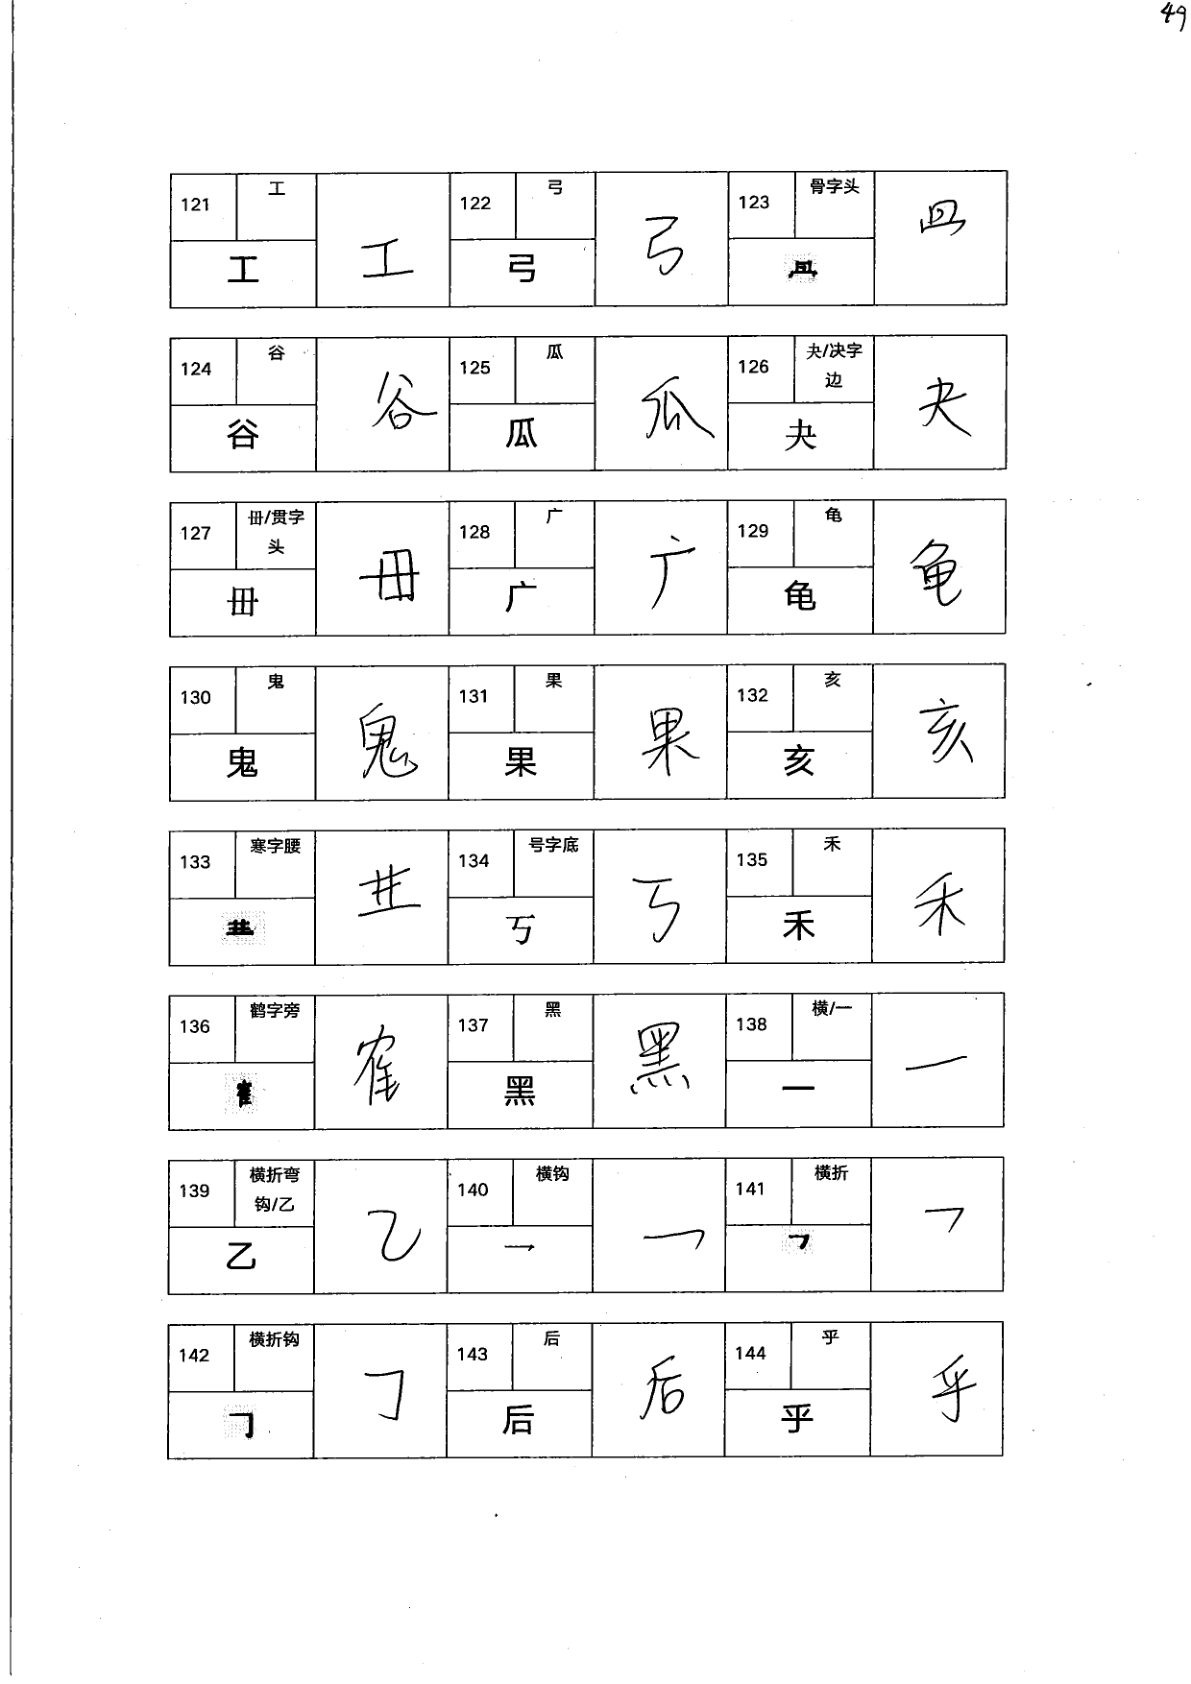 49
121 工 工 工 122 弓 弓 弓 123 骨字头
124 谷 谷 谷 125 瓜 瓜 瓜 126 夬/决字边 夬 夬
127 毌/贯字头 毌 毌 128 广 广 广 129 龟 龟 龟
130 鬼 鬼 鬼 131 果 果 果 132 亥 亥 亥
133 寒字腰 134 号字底 丂 丂 135 禾 禾 禾
136 鹤字旁 隺 隺 137 黑 黑 黑 138 横/一 一 一
139 横折弯钩/乙 乙 乙 140 横钩 乛 乛 141 横折 ㇇ ㇇
142 横折钩 𠃌 𠃌 143 后 后 后 144 乎 乎 乎